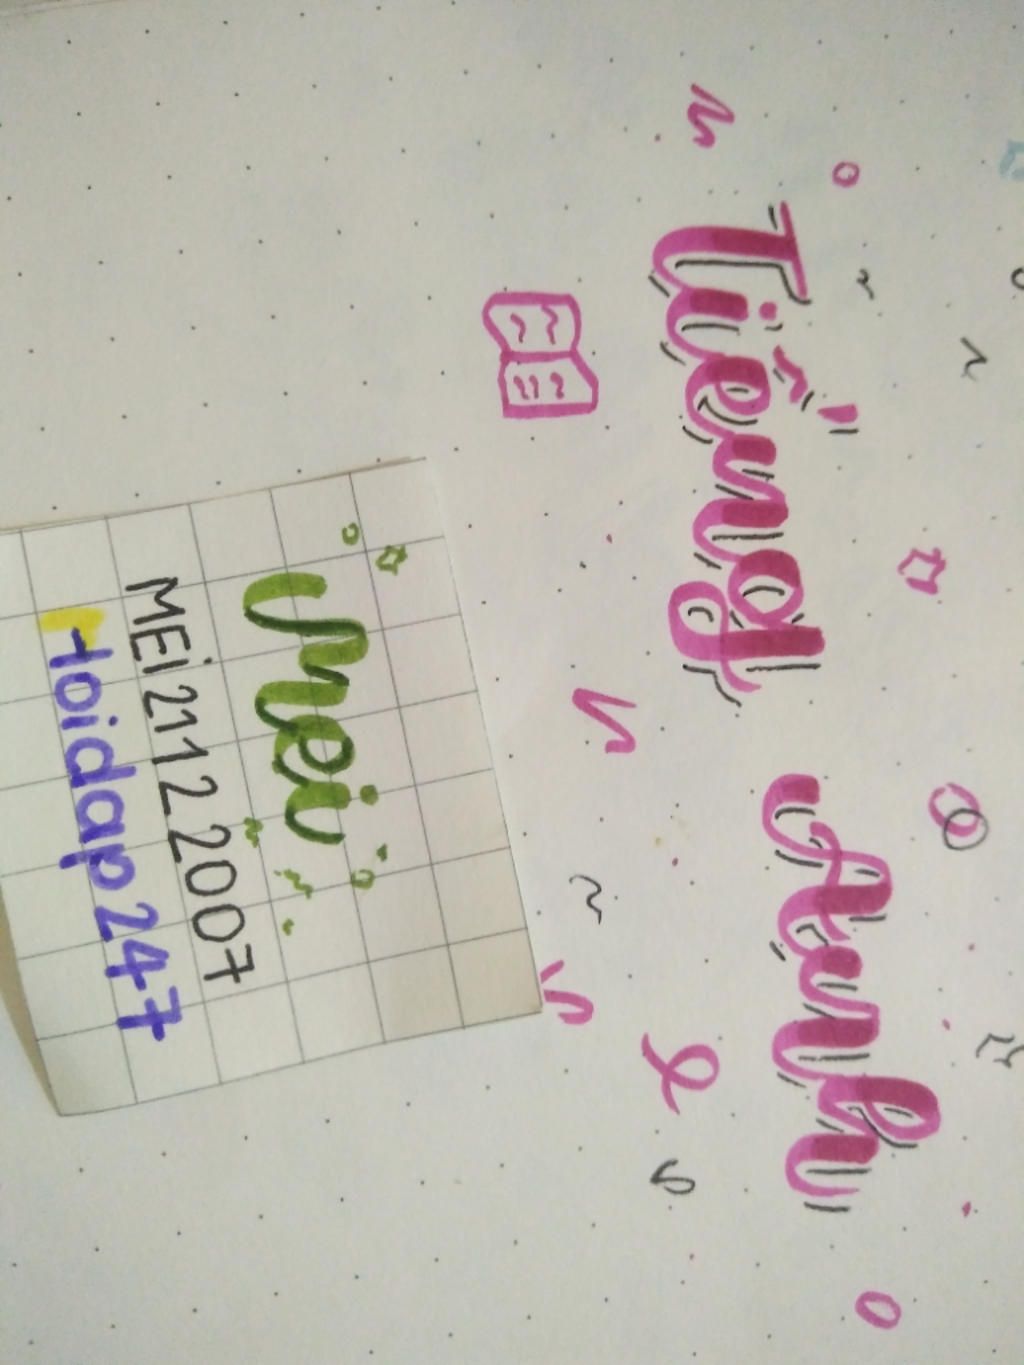 Tiếng Anh
Mei
MEi 2112 2007
Hoidap 247